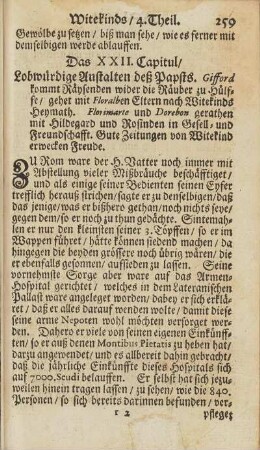 Witekinds / 4. Theil. 259
Gewölbe zu setzen / biß man sehe / wie es ferner mit
demselbigen werde ablauffen.
Das XXII. Capitul /
Lobwürdige Anstalten deß Papsts. Gifford
kommt Räysenden wider die Räuber zu Hülf-
fe / gehet mit Floralben Eltern nach Witekinds
Heymath. Florimarte und Dorebon gerathen
mit Hildegard und Rosinden in Gesell- und
Freundschafft. Gute Zeitungen von Witekind
erwecken Freude.
ZU Rom ware der H. Vatter noch immer mit
Abstellung vieler Mißbräuche beschäfftiget /
und als einige seiner Bedienten seinen Eyfer
trefflich herauß strichen / sagte er zu denselbigen / daß
das jenige / was er bißhero gethan / noch nichts seye /
gegen dem / so er noch zu thun gedächte. Sintemah-
len er nur den kleinsten seiner 3. Töpffen / so er im
Wappen führet / hätte können siedend machen / da
hingegen die beyden grössere noch übrig wären / die
er ebenfalls gesonnen / aufsieden zu lassen. Seine
vornehmste Sorge aber ware auf das Armen-
Hospital gerichtet / welches in dem Lateranischen
Pallast ware angeleget worden / dabey er sich erklä-
ret / daß er alles darauf wenden wolte / damit diese
seine arme Nepoten wohl möchten versorget wer-
den. Dahero er viele von seinen eigenen Einkünff-
ten / so er auß denen Montibus Pietatis zu heben hat /
darzu angewendet / und es allbereit dahin gebracht /
daß die jährliche Einkünffte dieses Hospitals sich
auf 7000. Scudi belauffen. Er selbst hat sich jezu-
weilen hinein tragen lassen / zu sehen / wie die 840.
Personen / so sich bereits darinnen befunden / ver-
r 2 pfleget